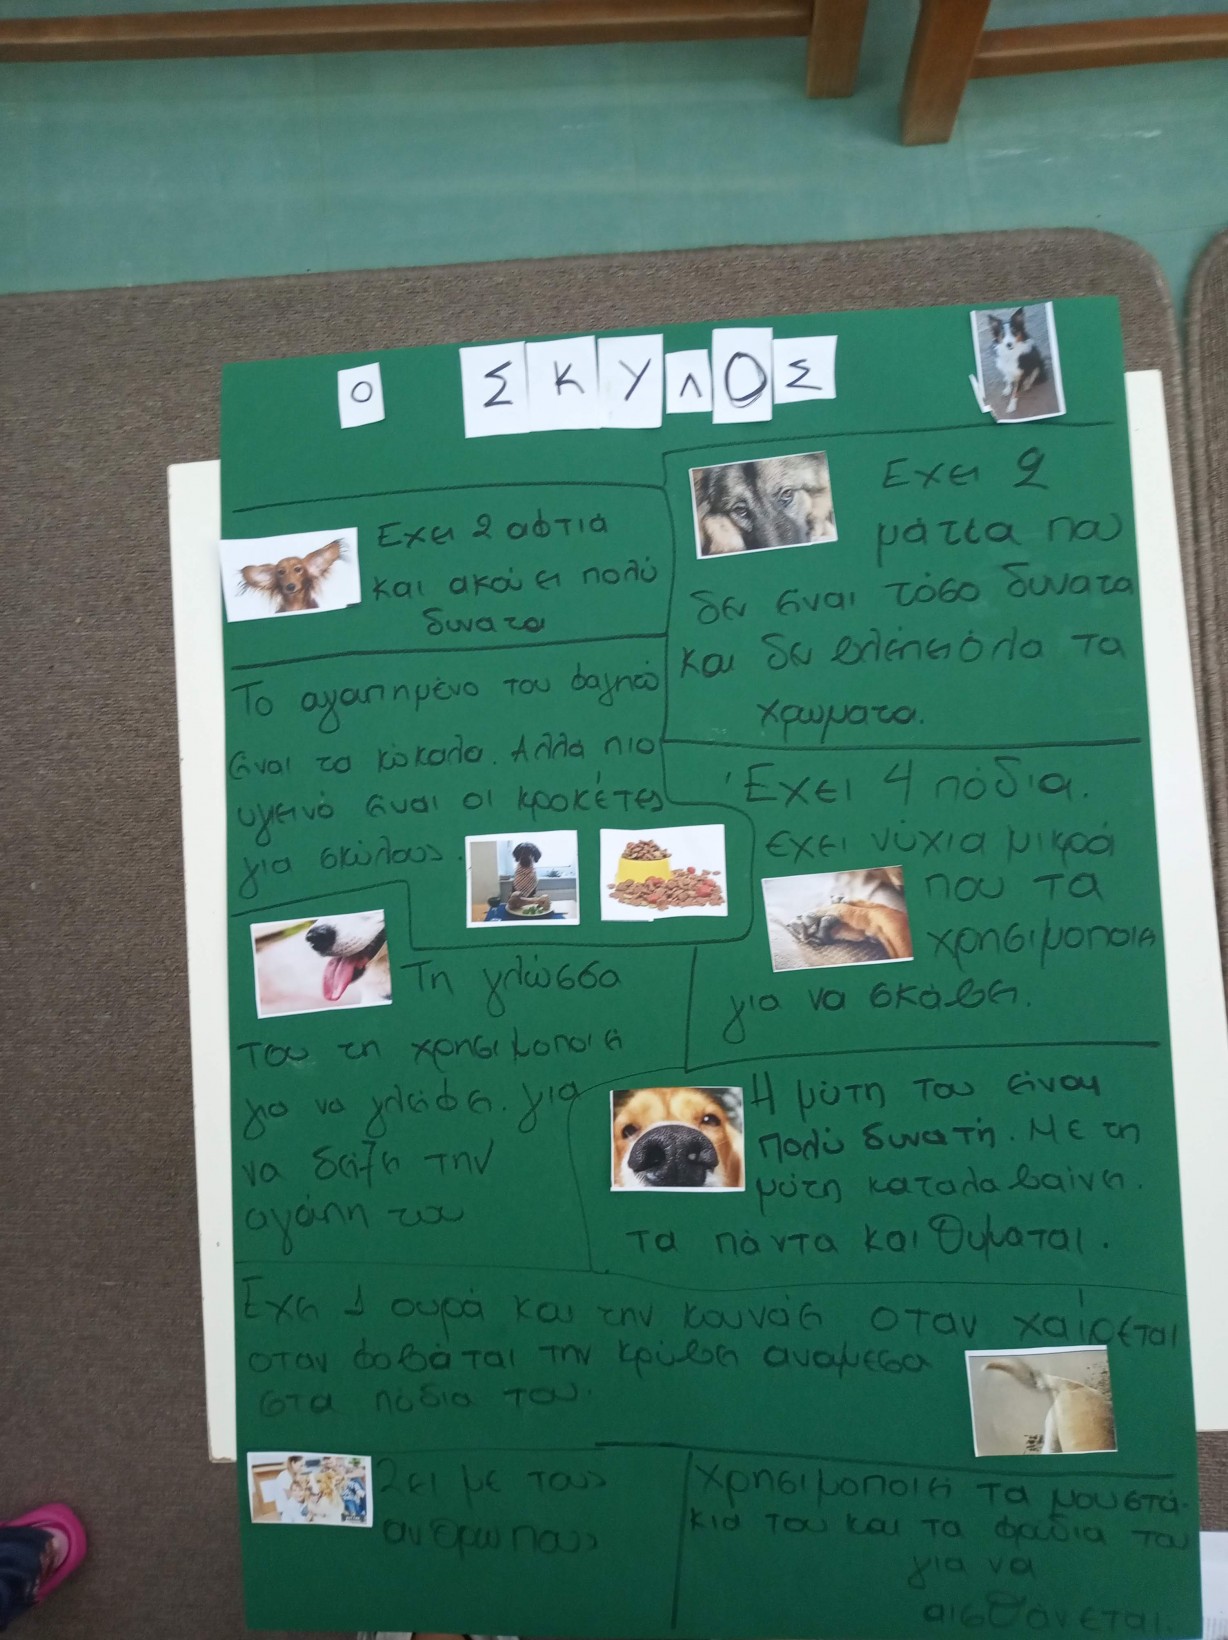 Ο ΣΚΥΛΟΣ
Εχει 2 αφτιά
και ακούει πολύ
δυνατα
Εχει 2
μάτια που
δεν είναι τόσο δυνατα
και δεν βλέπει όλα τα
χρωματα.
Το αγαπημένο του φαγητό
είναι το κόκαλο. Αλλά πιο
υγιεινό είναι οι κροκέτες
για σκύλους.
Έχει 4 πόδια.
εχει νύχια μικρά
που τα
χρησιμοποιεί
για να σκάβει.
Τη γλώσσα
του τη χρησιμοποιεί
για να γλείφει. για
να δείξη την
αγάπη του
Η μύτη του είναι
πολύ δυνατή. Με τη
μύτη καταλαβαίνει.
τα πάντα και θυμαται.
Εχει 1 ουρά και την κουνάει οταν χαίρεται
οταν φοβάται την κρύβει αναμεσα
στα πόδια του.
Ζει με τους
ανθρωπους
Χρησιμοποιεί τα μουστά-
κια του και τα φρύδια του
για να
αισθάνεται.